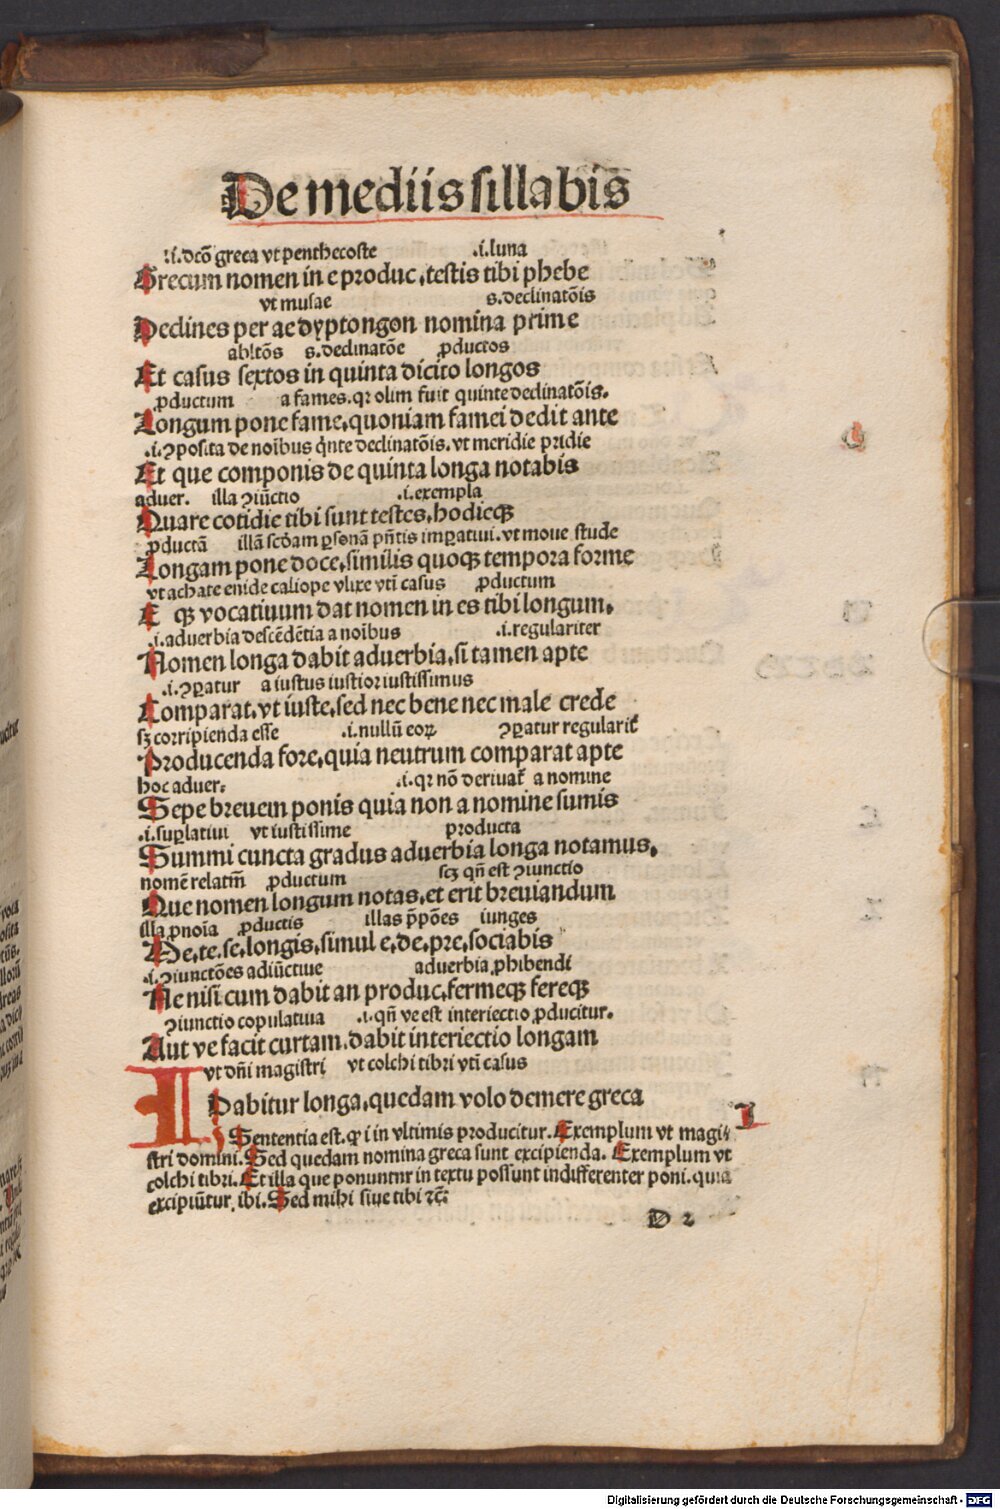 De mediis sillabis
.i. dcō greca vt penthecoste .i. luna
Grecum nomen in e produc, testis tibi phebe
vt musae s. declinatōis
Declines per ae dyptongon nomina prime
abltōs s. declinatōe ꝓductos
Et casus sextos in quinta dicito longos
ꝓductum a fames. qꝛ olim fuit quinte declinatōis.
Longum pone fame, quoniam famei dedit ante
.i. ꝯposita de noībus q̄nte declinatōis. vt meridie pridie
Et que componis de quinta longa notabis
aduer. illa ꝯiūctio .i. exempla
Quare cotidie tibi sunt testes, hodieqꝫ
ꝓductā illā scḋam ꝑsonā pn̄tis imꝑatiui. vt moue stude
Longam pone doce, similis quoqꝫ tempora forme
vt achate enide caliope vlixe vti casus ꝓductum
E qꝫ vocatiuum dat nomen in es tibi longum.
.i. aduerbia descēdētia a noībus .i. regulariter
Nomen longa dabit aduerbia, si tamen apte
.i. ꝯꝑatur a iustus iustior iustissimus
Comparat, vt iuste, sed nec bene nec male crede
sꝫ corripienda esse .i. nullū eoꝝ ꝯꝑatur regularit̄
Producenda fore, quia neutrum comparat apte
hoc aduer. .i. qꝛ nō deriuat̄ a nomine
Sepe breuem ponis quia non a nomine sumis
.i. suꝑlatiui vt iustissime producta
Summi cuncta gradus aduerbia longa notamus.
nomē relatiū ꝓductum scꝫ qn̄ est ꝯiunctio
Que nomen longum notas, et erit breuiandum
illa ꝓnoīa ꝓductis illas p̄pōes iunges
De. te. se. longis, simul e, de, pre, sociabis
.i. ꝯiunctōes adiūctiue aduerbia ꝓhibendi
Ne nisi cum dabit an produc, fermeqꝫ fereqꝫ
ꝯiunctio copulatiua .i. qn̄ ve est interiectio ꝓducitur.
Aut ve facit curtam, dabit interiectio longam
vt dn̄i magistri vt colchi tibri vti casus
I Dabitur longa, quedam volo demere greca
Sententia est. ꝙ i in vltimis producitur. Exemplum vt magi⸗ I
stri domini. Sed quedam nomina greca sunt excipienda. Exemplum vt
colchi tibri. Et illa que ponuntur in textu possunt indifferenter poni. quia
excipiūtur, ibi. Sed mihi siue tibi ⁊cꝫ
D 2
Digitalisierung gefördert durch die Deutsche Forschungsgemeinschaft - DFG